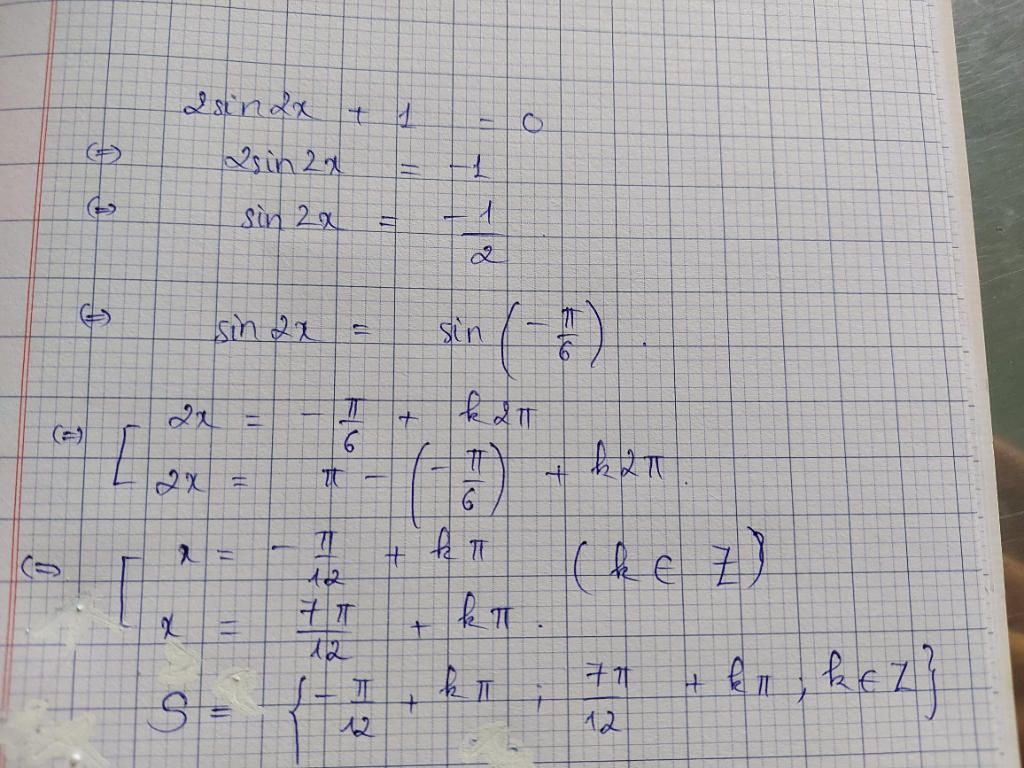 2sin2x + 1 = 0
(=) 2sin2x = -1
(=) sin 2x = -1/2
(=) sin 2x = sin (-π/6).
(=) [ 2x = -π/6 + k2π
2x = π - (-π/6) + k2π.
(=) [ x = -π/12 + kπ (k ∈ Z)
x = 7π/12 + kπ.
S = {-π/12 + kπ ; 7π/12 + kπ, k ∈ Z}